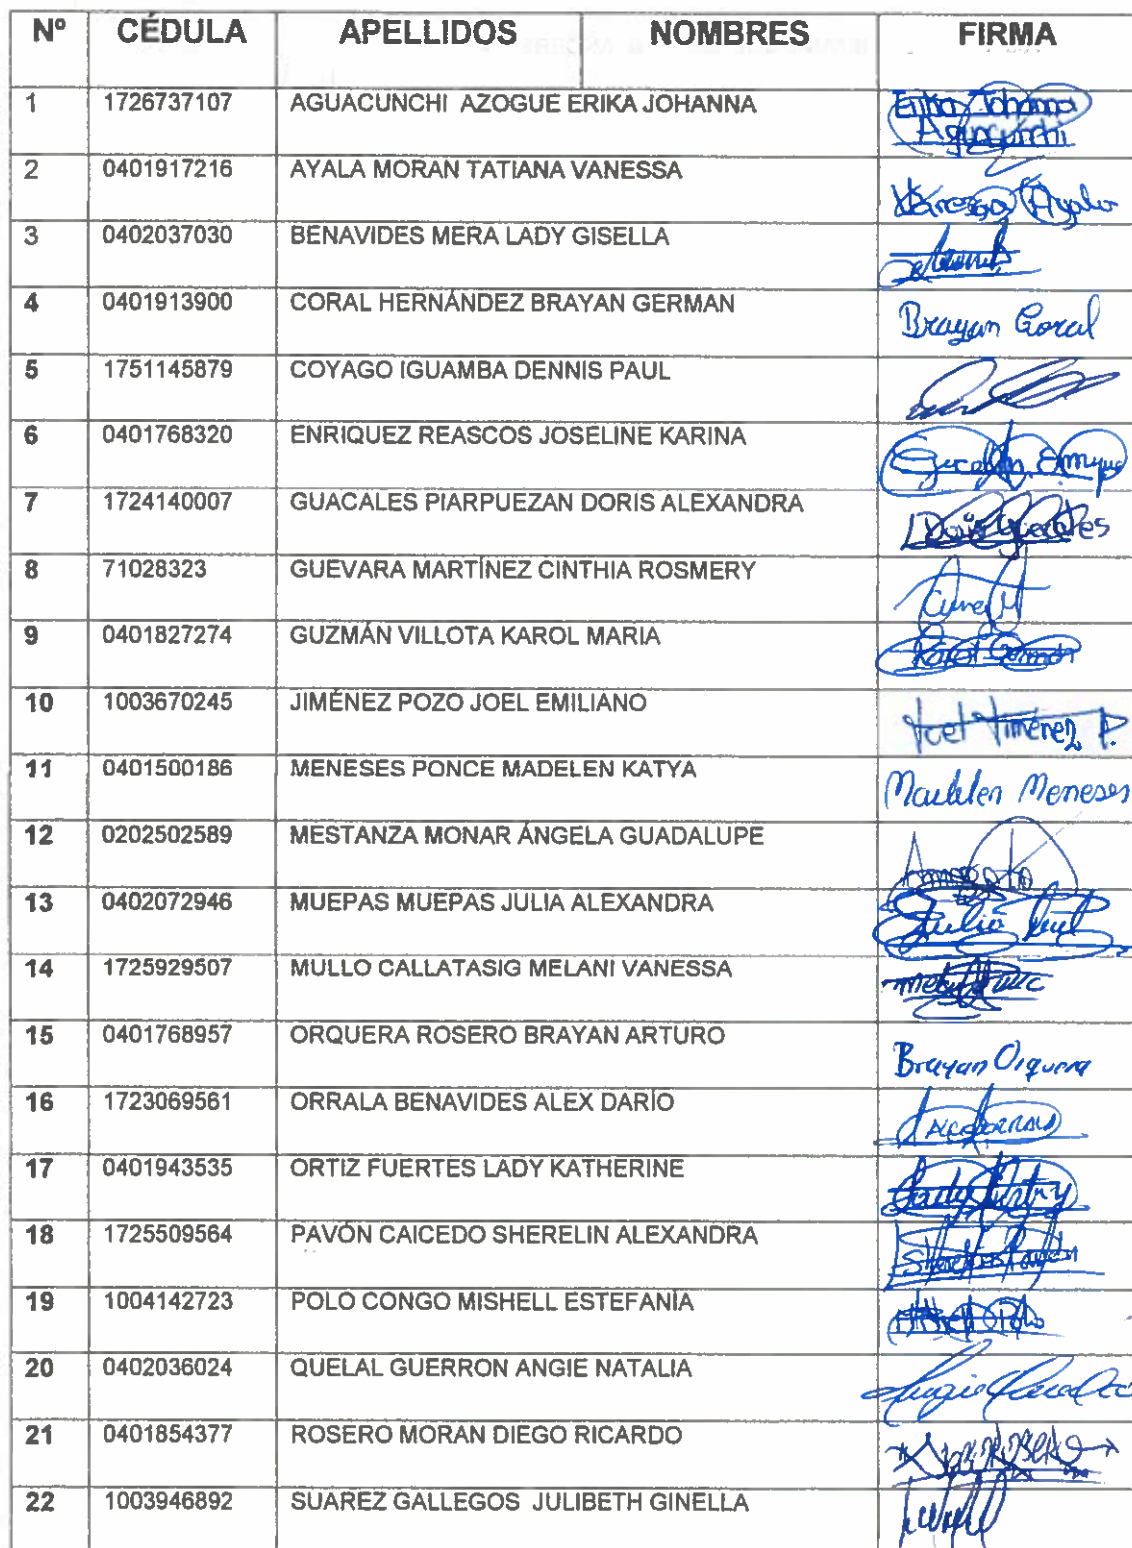 Nº CÉDULA APELLIDOS NOMBRES FIRMA
1 1726737107 AGUACUNCHI AZOGUE ERIKA JOHANNA Erika Johanna
Aguacunchi
2 0401917216 AYALA MORAN TATIANA VANESSA Vanessa Ayala
3 0402037030 BENAVIDES MERA LADY GISELLA
4 0401913900 CORAL HERNÁNDEZ BRAYAN GERMAN Brayan Coral
5 1751145879 COYAGO IGUAMBA DENNIS PAUL
6 0401768320 ENRIQUEZ REASCOS JOSELINE KARINA
7 1724140007 GUACALES PIARPUEZAN DORIS ALEXANDRA Doris Guacales
8 71028323 GUEVARA MARTÍNEZ CINTHIA ROSMERY
9 0401827274 GUZMÁN VILLOTA KAROL MARIA Karol Guzmán
10 1003670245 JIMÉNEZ POZO JOEL EMILIANO Joel Jiménez P.
11 0401500186 MENESES PONCE MADELEN KATYA Madelen Meneses
12 0202502589 MESTANZA MONAR ÁNGELA GUADALUPE
13 0402072946 MUEPAS MUEPAS JULIA ALEXANDRA
14 1725929507 MULLO CALLATASIG MELANI VANESSA
15 0401768957 ORQUERA ROSERO BRAYAN ARTURO Brayan Orquera
16 1723069561 ORRALA BENAVIDES ALEX DARÍO
17 0401943535 ORTIZ FUERTES LADY KATHERINE
18 1725509564 PAVÓN CAICEDO SHERELIN ALEXANDRA
19 1004142723 POLO CONGO MISHELL ESTEFANÍA
20 0402036024 QUELAL GUERRON ANGIE NATALIA
21 0401854377 ROSERO MORAN DIEGO RICARDO
22 1003946892 SUAREZ GALLEGOS JULIBETH GINELLA